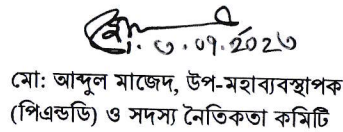 ৩.০৭.২০২৩
মো: আব্দুল মাজেদ, উপ-মহাব্যবস্থাপক
(পিএন্ডডি) ও সদস্য নৈতিকতা কমিটি